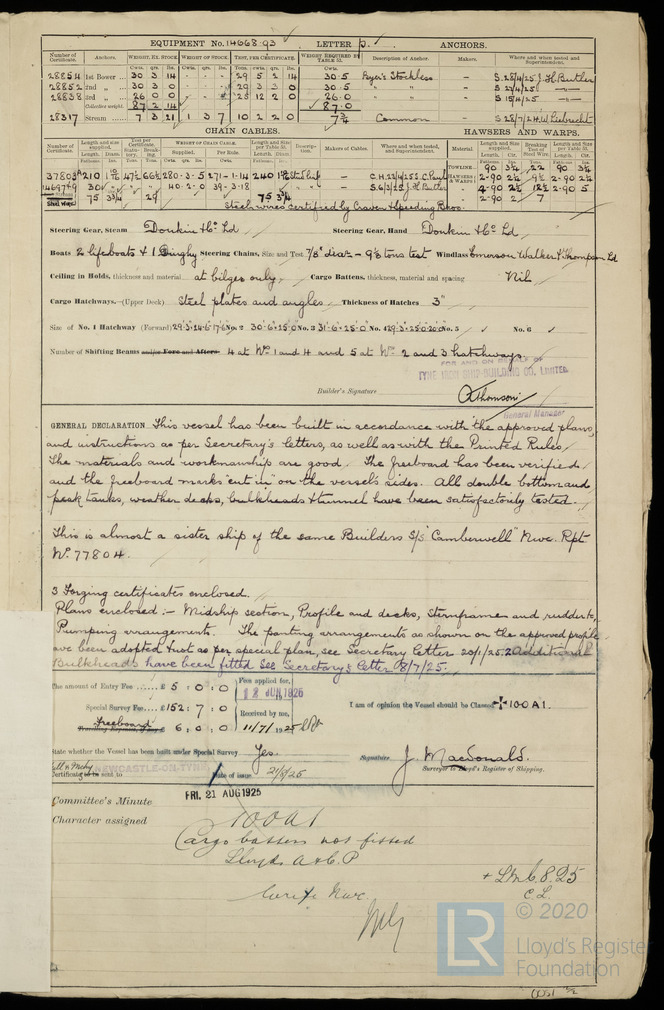 EQUIPMENT No. 14668.93 LETTER ANCHORS.
Number of Certificate. Anchors. WEIGHT, EX. STOCK. WEIGHT OF STOCK. TEST, PER CERTIFICATE. WEIGHT REQUIRED BY TABLE 31. Description of Anchor. Makers. Where and when tested and Superintendent.
Cwts. qrs. lbs. Cwts. qrs. lbs. Tons. cwts. qrs. lbs. Cwts.
28851 1st Bower 30 3 14 - - - 29 5 2 14 30.5 Byers Stockless S 28/4/25 J.H. Butler
28852 2nd " 30 3 0 - - - 29 3 3 0 30.5 " " S
28838 3rd " 26 0 0 - - - 25 12 2 0 26.0 " " S
Collective weight. 87 2 14 87.0
28317 Stream 7 3 21 1 3 7 10 2 2 0 7¾ Common
CHAIN CABLES. HAWSERS AND WARPS.
Number of Certificate. Length and size supplied. Test per Certificate. WEIGHT OF CHAIN CABLE. Length and size per Table 31. Description. Makers of Cables. Where and when tested, and Superintendent. Material. Length and size supplied. Breaking Test of Steel Wire. Length and size per Table 31.
37803 210 280-3-5 271-1-14 240
30 40-2-0 39-3-18
75 75
TOWLINE 90 3½ 22 90 3½
HAWSERS & WARPS 2-90 2½ 2-90
2-90 2½ 2-90 5
2-90 2 7
Steel wires certified by Craven & Speeding Bros.
Steering Gear, Steam Donkin & Co Ld Steering Gear, Hand Donkin & Co Ld
Boats 2 lifeboats & 1 Dinghy Steering Chains, Size and Test 7/8" diar - 9⅛ tons test Windlass Emerson Walker & Thompson Ld
Ceiling in Holds, thickness and material at bilges only Cargo Battens, thickness, material and spacing Nil
Cargo Hatchways.—(Upper Deck) Steel plates and angles Thickness of Hatches 3"
Size of No. 1 Hatchway (Forward) 29-3 × 24-6 17-6 No. 2 30-6 × 25-0 No. 3 31-6 × 25-0 No. 4 29-3 × 25-0 20-0 No. 5 No. 6
Number of Shifting Beams and/or Fore and Afters 4 at No. 1 and 4 and 5 at No. 2 and 3 hatchways
FOR AND ON BEHALF OF
TYNE IRON SHIP-BUILDING CO. LIMITED.
Builder's Signature AThomson
General Manager
GENERAL DECLARATION This vessel has been built in accordance with the approved plans,
and instructions as per Secretary's letters, as well as with the Printed Rules.
The materials and workmanship are good. The freeboard has been verified
and the freeboard marks cut in on the vessel's sides. All double bottom and
peak tanks, weather decks, bulkheads & tunnel have been satisfactorily tested.
This is almost a sister ship of the same Builders S/S "Camberwell" Nwc. Rpt
No. 77804.
3 Forging certificates enclosed.
Plans enclosed :- Midship section, Profile and decks, Sternframe and rudder,
Pumping arrangements. The panting arrangements as shown on the approved profile
ave been adopted but as per special plan, see Secretary letter 20/1/25. 2 Additional
Bulkheads have been fitted See Secretary's Letter 8/7/25.
The amount of Entry Fee £ 5 : 0 : 0
Special Survey Fee £152 : 7 : 0
Freeboard 6 : 0 : 0
Fees applied for,
12 JUN 1925
Received by me,
11/7/1925
I am of opinion the Vessel should be Classed +100A1.
State whether the Vessel has been built under Special Survey Yes.
Signature J. Macdonald.
Surveyor to Lloyd's Register of Shipping.
Certificate to be sent to NEWCASTLE-ON-TYNE.
Date of issue 21/8/25
Committee's Minute FRI. 21 AUG 1925
Character assigned 100A1
Cargo battens not fitted
Lloyds A & C. P
+ LMC 8.25
C.L.
Write Nwc.
© 2020
LR Lloyd's Register
Foundation